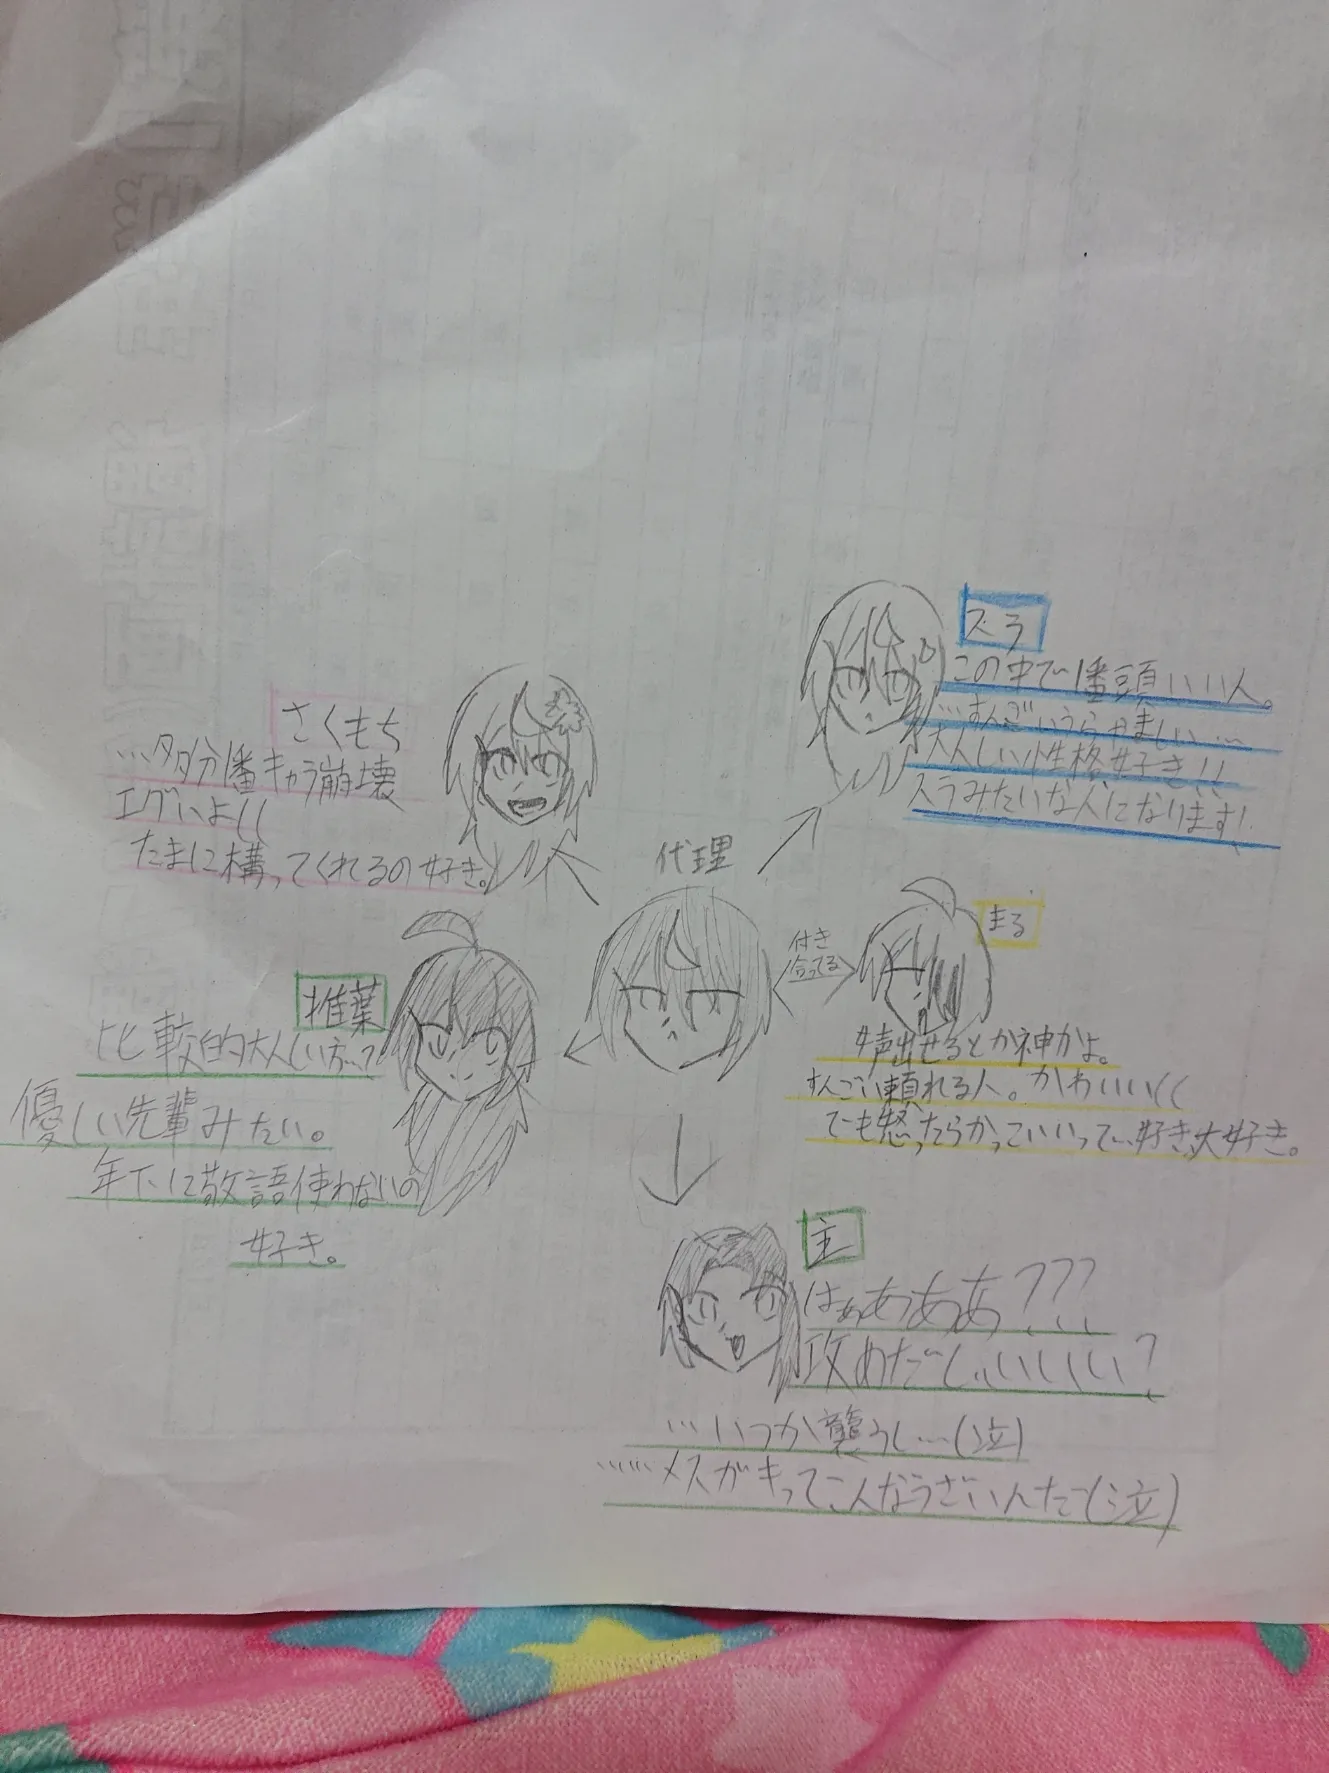 スラ
この中で1番頭いい人。
…すんごいうらやましい…
大人しい性格好き！！
スラみたいな人になります！
さくもち
…多分1番キャラ崩壊
エグいよ((
たまに構ってくれるの好き。
代理
付き
合ってる
まる
声出せるとか神かよ。
すんごい頼れる人。かわいい((
でも怒ったらかっこいいって…好き、大好き。
椎葉
比較的大人しい方…?
優しい先輩みたい。
年下に敬語使わないの
好き。
主
はぁぁあああ???
攻めだしぃいいい?
…いつか襲うし…(泣)
……メスガキってこんなうざいんだ(泣)